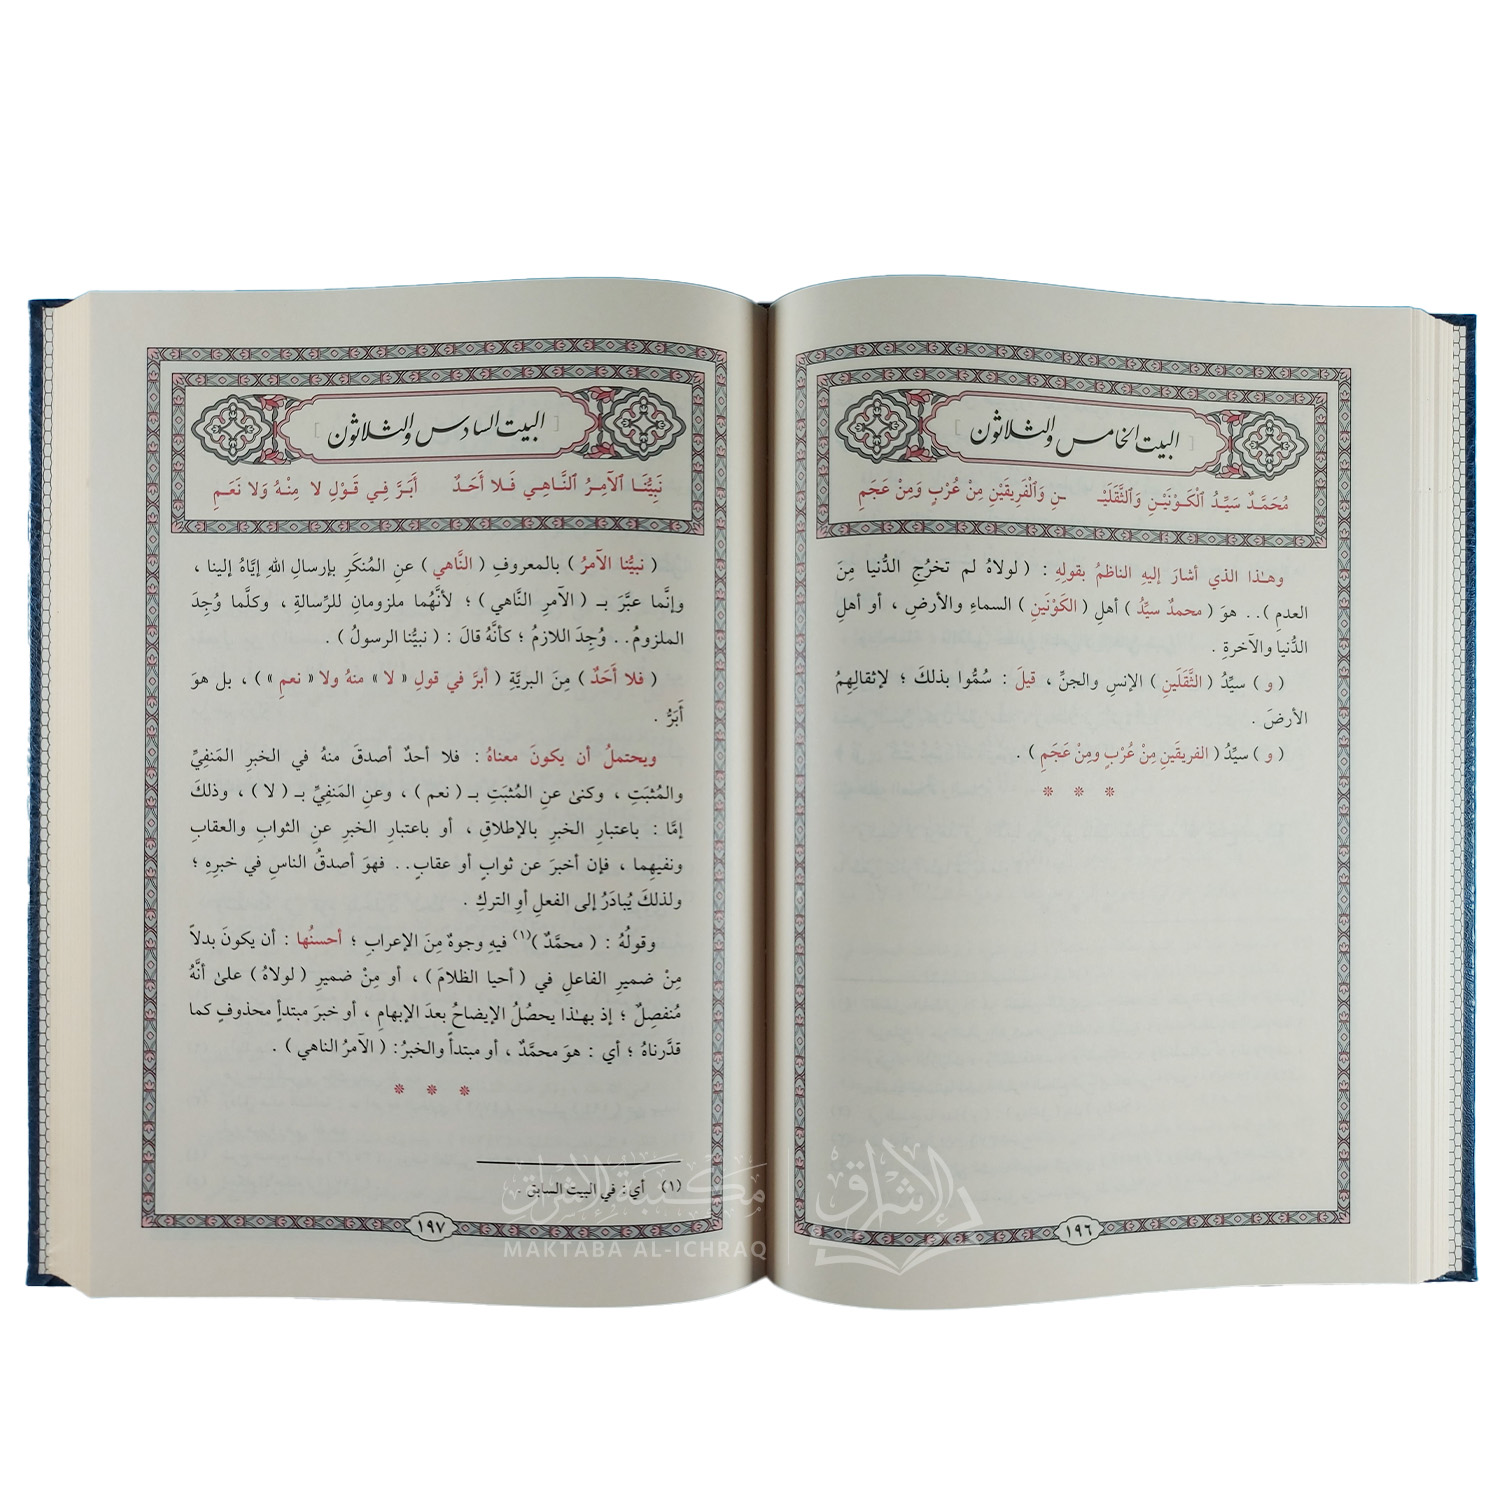 [ البيت الخامس والثلاثون ]
مُحَمَّدٌ سَيِّدُ الْكَوْنَيْنِ وَالثَّقَلَيْـ ـنِ وَالْفَرِيقَيْنِ مِنْ عُرْبٍ وَمِنْ عَجَمِ
وهـٰذا الذي أشارَ إليهِ الناظمُ بقولهِ : ( لولاهُ لم تخرُجِ الدُّنيا مِنَ
العدمِ ).. هوَ ( محمدٌ سيِّدُ ) أهلِ ( الكَوْنَينِ ) السماءِ والأرضِ ، أو أهلِ
الدُّنيا والآخرةِ .
( و ) سيِّدُ ( الثَّقَلَينِ ) الإنسِ والجنِّ ، قيلَ : سُمُّوا بذلكَ ؛ لإثقالِهِمُ
الأرضَ .
( و ) سيِّدُ ( الفريقَينِ مِنْ عُرْبٍ ومِنْ عَجَمِ ) .
* * *
١٩٦
[ البيت السادس والثلاثون ]
نَبِيُّنَا الْآمِرُ النَّاهِي فَلا أَحَدٌ أَبَرَّ فِي قَوْلِ لا مِنْهُ وَلا نَعَمِ
( نبيُّنا الآمرُ ) بالمعروفِ ( النَّاهي ) عنِ المُنكَرِ بإرسالِ اللهِ إيَّاهُ إلينا ،
وإنَّما عبَّرَ بـ ( الآمرِ النَّاهي ) ؛ لأنَّهُما ملزومانِ للرِّسالةِ ، وكلَّما وُجِدَ
الملزومُ.. وُجِدَ اللازمُ ؛ كأنَّهُ قالَ : ( نبيُّنا الرسولُ ) .
( فلا أَحَدٌ ) مِنَ البريَّةِ ( أبرَّ في قولِ « لا » منهُ ولا « نعمِ » ) ، بل هوَ
أَبَرُّ .
ويحتملُ أن يكونَ معناهُ : فلا أحدٌ أصدقَ منهُ في الخبرِ المَنفيِّ
والمُثبَتِ ، وكنىٰ عنِ المُثبَتِ بـ ( نعم ) ، وعنِ المَنفيِّ بـ ( لا ) ، وذلكَ
إمَّا : باعتبارِ الخبرِ بالإطلاقِ ، أو باعتبارِ الخبرِ عنِ الثوابِ والعقابِ
ونفيهِما ، فإن أخبرَ عن ثوابٍ أو عقابٍ.. فهوَ أصدقُ الناسِ في خبرِهِ ؛
ولذلكَ يُبادَرُ إلى الفعلِ أوِ التركِ .
وقولُهُ : ( محمَّدٌ )(١) فيهِ وجوهٌ مِنَ الإعرابِ ؛ أحسنُها : أن يكونَ بدلاً
مِنْ ضميرِ الفاعلِ في ( أحيا الظلامَ ) ، أو مِنْ ضميرِ ( لولاهُ ) علىٰ أنَّهُ
مُنفصِلٌ ؛ إذ بهـٰذا يحصُلُ الإيضاحُ بعدَ الإبهامِ ، أو خبرَ مبتدأٍ محذوفٍ كما
قدَّرناهُ ؛ أي : هوَ محمَّدٌ ، أو مبتدأً والخبرُ : ( الآمرُ الناهي ) .
* * *
(١) أي : في البيت السابق .
١٩٧
مكتبة الإشراق
MAKTABA AL-ICHRAQ
الإشراق